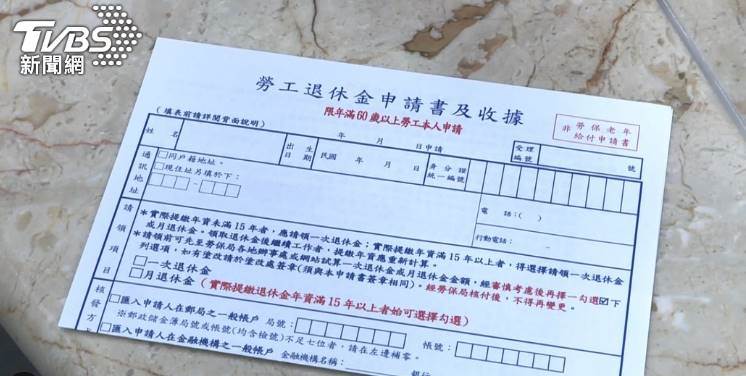 TVBS
新聞網
勞工退休金申請書及收據
限年滿60歲以上勞工本人申請
非勞保老年
給付申請書
(填表前請詳閱背面說明)
年 月 日申請
受理
編號
號
姓名
出生
日期
民國 年 月 日
身分證
統一編號
通訊地址
□同戶籍地址。
□現住址另填於下:
電 話:( )
行動電話: -
請領項目
*實際提繳年資未滿15年者,應請領一次退休金;實際提繳年資滿15年以上者,得選擇請領一次退休金
或月退休金。領取退休金後繼續工作者,提繳年資應重新計算。
*請領前可先至勞保局各地辦事處或網站試算一次退休金或月退休金金額,經審慎考慮後再擇一勾選☑下
列選項,如有塗改請於塗改處簽章(須與本申請書簽章相同),經勞保局核付後,不得再變更。
□一次退休金
□月退休金(實際提繳退休金年資滿15年以上者始可選擇勾選)
核發方
□匯入申請人在郵局之一般帳戶 局號: 帳號:
※郵政儲金簿局號或帳號(均含檢號)不足七位者,請在左邊補零。
□匯入申請人在金融機構之一般帳戶 金融機構名稱: 銀行